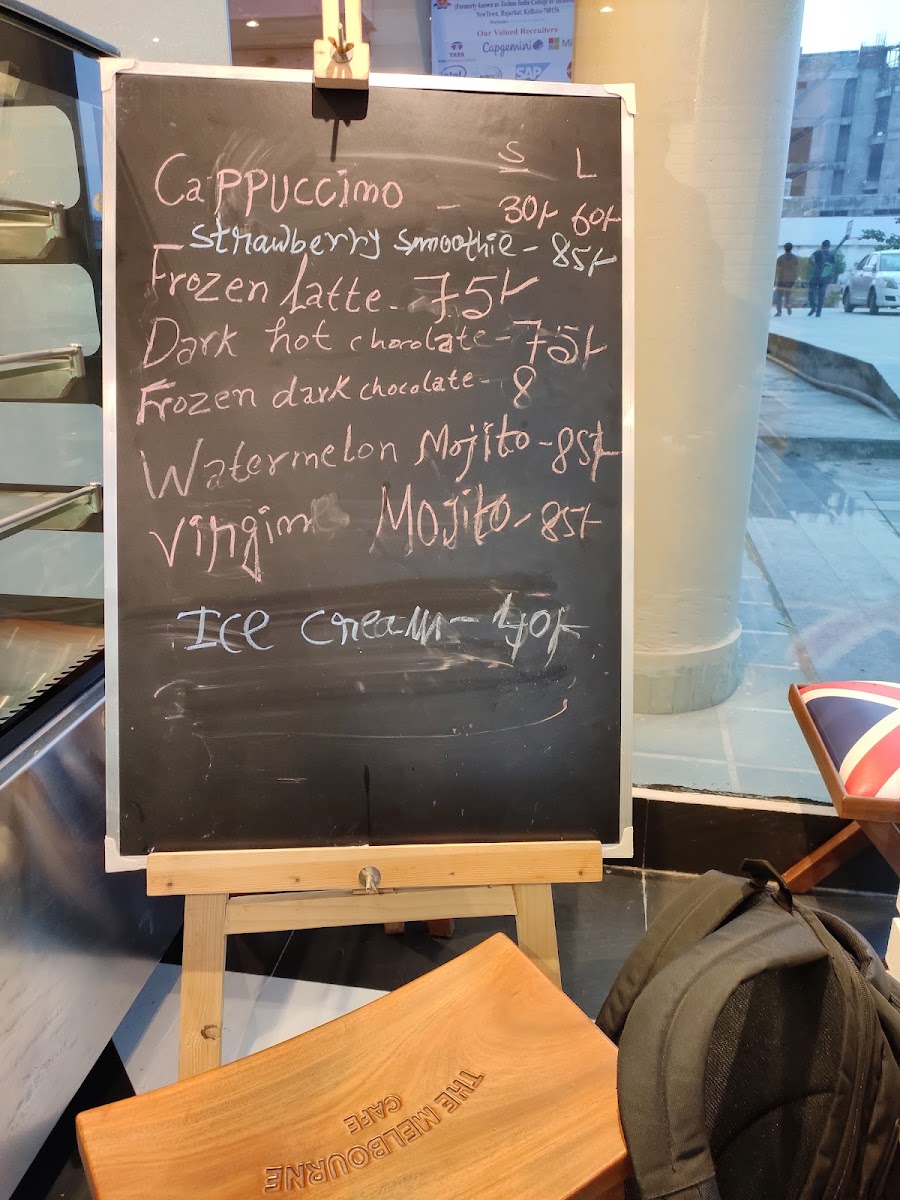 (Formerly known as Techno India College of Technology)
NewTown, Rajarhat, Kolkata-700156
Our Valued Recruiters
TATA Capgemini Mi
intel SAP
S L
Cappuccimo - 30/- 60/-
Strawberry smoothie - 85/-
Frozen latte - 75/-
Dark hot chocolate - 75/-
Frozen dark chocolate - 8
Watermelon Mojito - 85/-
virgin Mojito - 85/-
Ice cream - 40/-
THE MELBOURNE
CAFE